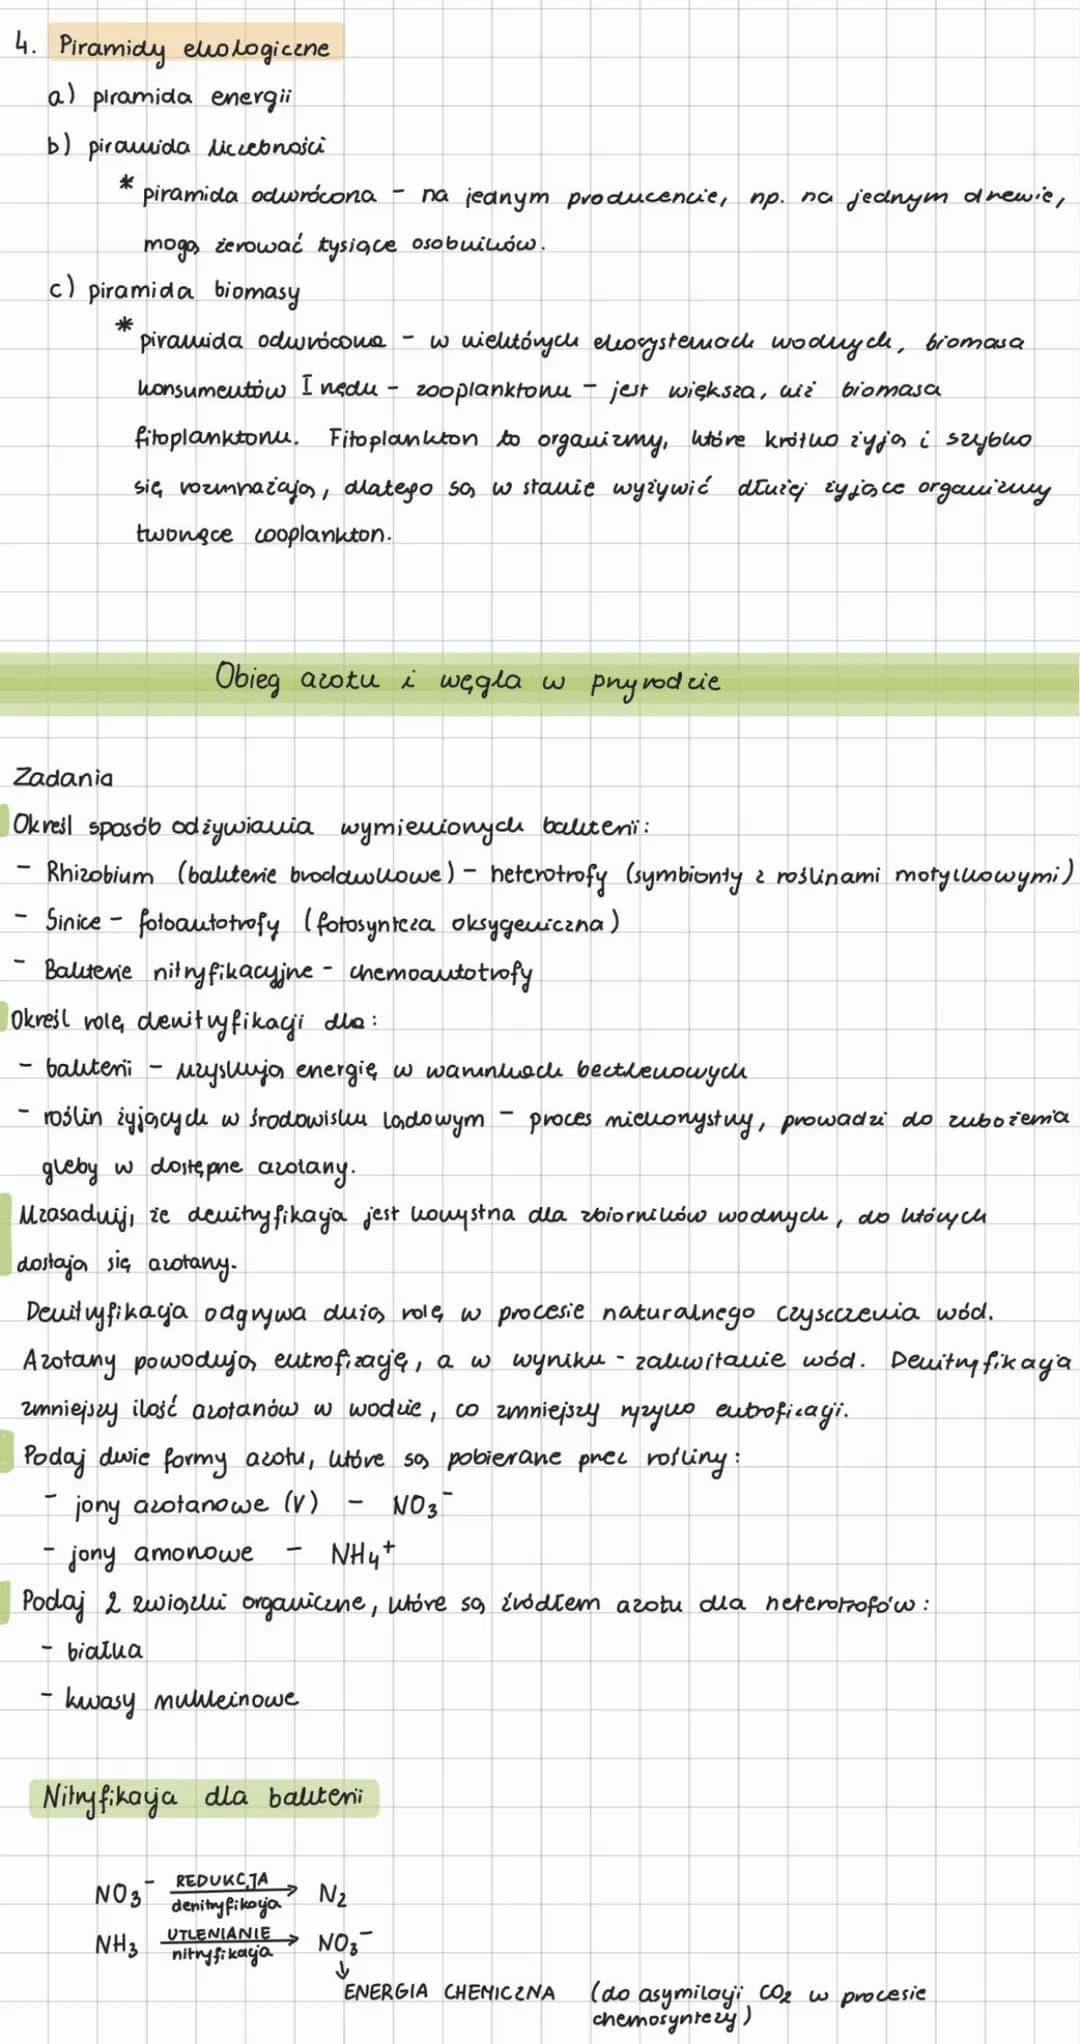 4. Piramidy ekologiczne
a) piramida energii
b) piramida liczebności
* piramida odwrócona - na jednym producencie, np. na jednym drzewie,
mogą żerować tysiące osobników.
c) piramida biomasy
* piramida odwrócona - w niektórych ekosystemach wodnych, biomasa
konsumentów I rzędu - zooplanktonu - jest większa, niż biomasa
fitoplanktonu. Fitoplankton to organizmy, które krótko żyją i szybko
się rozmnażają, dlatego są w stanie wyżywić dłużej żyjące organizmy
tworzące zooplankton.
Obieg azotu i węgla w przyrodzie
Zadania
Określ sposób odżywiania wymienionych bakterii:
- Rhizobium (bakterie brodawkowe) - heterotrofy (symbionty z roślinami motylkowymi)
- Sinice - fotoautotrofy (fotosynteza oksygeniczna)
- Bakterie nitryfikacyjne - chemoautotrofy
Określ rolę denitryfikacji dla:
- bakterii - uzyskują energię w warunkach beztlenowych
- roślin żyjących w środowisku lądowym - proces niekorzystny, prowadzi do zubożenia
gleby w dostępne azotany.
Uzasadnij, że denitryfikacja jest korzystna dla zbiorników wodnych, do których
dostają się azotany.
Denitryfikacja odgrywa dużą rolę w procesie naturalnego czyszczenia wód.
Azotany powodują eutrofizację, a w wyniku - zakwitanie wód. Denitryfikacja
zmniejszy ilość azotanów w wodzie, co zmniejszy ryzyko eutrofizacji.
Podaj dwie formy azotu, które są pobierane przez rośliny:
- jony azotanowe (V) - NO₃⁻
- jony amonowe - NH₄⁺
Podaj 2 związki organiczne, które są źródłem azotu dla heterotrofów:
- białka
- kwasy nukleinowe
Nitryfikacja dla bakterii
NO₃⁻ REDUKCJA denitryfikacja → N₂
NH₃ UTLENIANIE nitryfikacja → NO₃⁻
↓
ENERGIA CHEMICZNA (do asymilacji CO₂ w procesie
chemosyntezy)